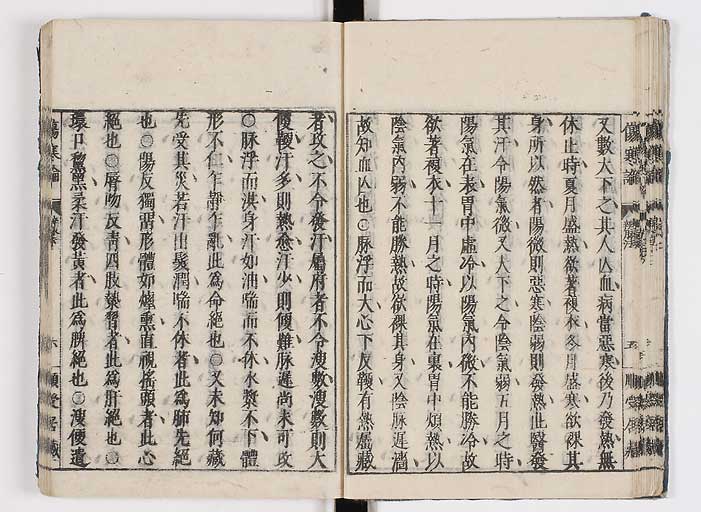 又數大下之其人亾血病當惡寒後乃發熱無
休止時夏月盛熱欲著複衣冬月盛寒欲裸其
身所以然者陽微則惡寒陰弱則發熱此醫發
其汗令陽氣微又大下之令陰氣弱五月之時
陽氣在表胃中虛冷以陽氣內微不能勝冷故
欲著複衣十一月之時陽氣在裏胃中煩熱以
陰氣內弱不能勝熱故欲裸其身又陰脉遲濇
故知血亾也〇脉浮而大心下反鞕有熱屬藏
者攻之不令發汗屬府者不令溲數溲數則大
便鞕汗多則熱愈汗少則便難脉遲尚未可攻
〇脉浮而洪身汗如油喘而不休水漿不下體
形不仁乍靜乍亂此爲命絕也〇又未知何藏
先受其災若汗出髮潤喘不休者此爲肺先絕
也〇陽反獨留形體如煙熏直視搖頭者此心
絕也〇脣吻反青四肢漐習者此爲肝絕也〇
環口黧黑柔汗發黃者此爲脾絕也〇溲便遺
傷寒論
六